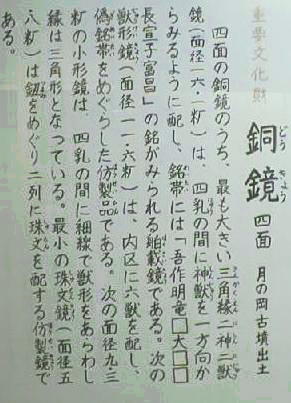 重要文化財
銅鏡 四面 月の岡古墳出土
どう きょう
四面の銅鏡のうち、最も大きい三角縁二神二獣
鏡(面径一六・一糎)は、四乳の間に神獣を一方向か
らみるように配し、銘帯には「吾作明竟□大□□
長宜子富昌」の銘がみられる舶載鏡である。次の
獣形鏡(面径一一・六糎)は、内区に六獣を配し、
偽銘帯をめぐらした仿製品である。次の面径九・三
糎の小形鏡は、四乳の間に細線で獣形をあらわし
縁は三角形となっている。最小の珠文鏡(面径五・
八糎)は鈕をめぐり二列に珠文を配する仿製鏡で
ある。